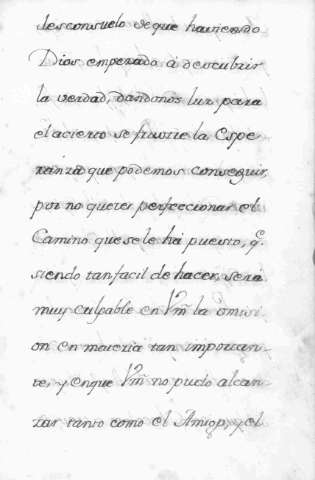 desconsuelo deque haviendo
Dios empezado á descubrir
la verdad, dandonos luz para
el acierto se frustre la Espe-
ranza que podemos conseguir,
por no querer perfeccionar el
Camino que se le há puesto, q.^e
siendo tan facil de hacer, será
muy culpable en Vm̃ la omisi-
on en materia tan importan-
te, y en que Vm̃ no pudo alcan-
zar tanto como el Amigo, y el